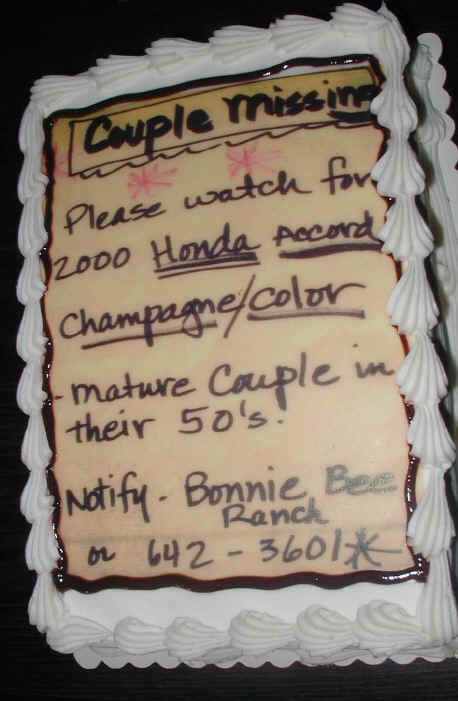 Couple missing
Please watch for
2000 Honda Accord
Champagne/color
- mature Couple in
their 50's.
Notify - Bonnie Bee
Ranch
or 642-3601*